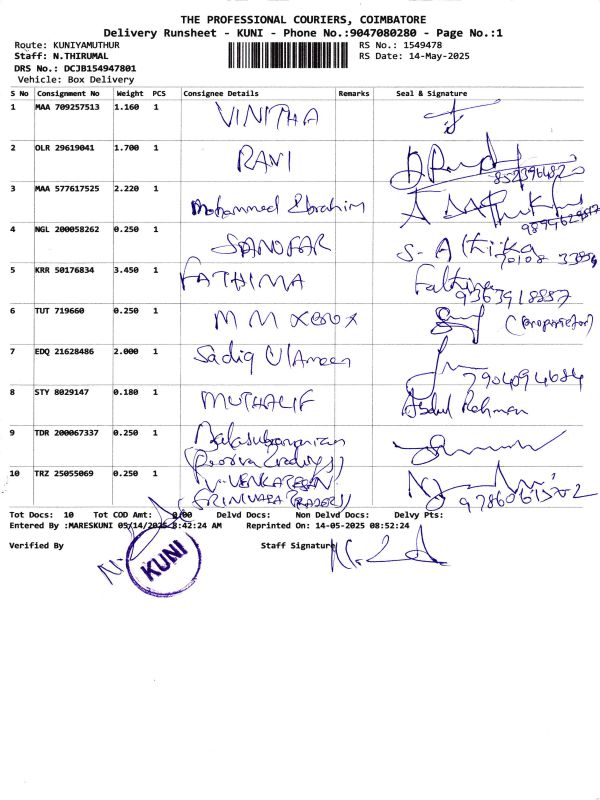 THE PROFESSIONAL COURIERS, COIMBATORE
Delivery Runsheet - KUNI - Phone No.:9047080280 - Page No.:1
Route: KUNIYAMUTHUR RS No.: 1549478
Staff: N.THIRUMAL RS Date: 14-May-2025
DRS No.: DCJB154947801
Vehicle: Box Delivery
S No Consignment No Weight PCS Consignee Details Remarks Seal & Signature
1 MAA 709257513 1.160 1 VINITHA
2 OLR 29619041 1.700 1 RANI
3 MAA 577617525 2.220 1 Mohammed Ebrahim
4 NGL 200058262 0.250 1 SANOFAR
5 KRR 50176834 3.450 1 FATHIMA Fathima 9363918887
6 TUT 719660 0.250 1 M M XEROX (Proprietor)
7 EDQ 21628486 2.000 1 Sadiq Ul Ameen 7904094684
8 STY 8029147 0.180 1 MUTHALIF Abdul Rahman
9 TDR 200067337 0.250 1 Balasubramanian
10 TRZ 25055069 0.250 1 V. VENKATESAN
Tot Docs: 10 Tot COD Amt: 0.00 Delvd Docs: Non Delvd Docs: Delvy Pts:
Entered By :MARESKUNI 05/14/2025 8:42:24 AM Reprinted On: 14-05-2025 08:52:24
Verified By Staff Signature
KUNI